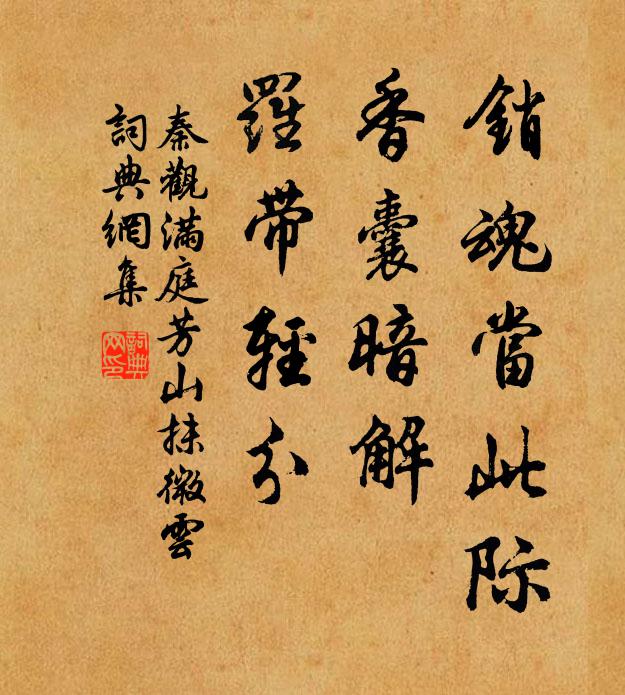 銷魂當此际
香囊暗解
羅带輕分
秦觀滿庭芳山抹微雲
詞典網集
詞典網印